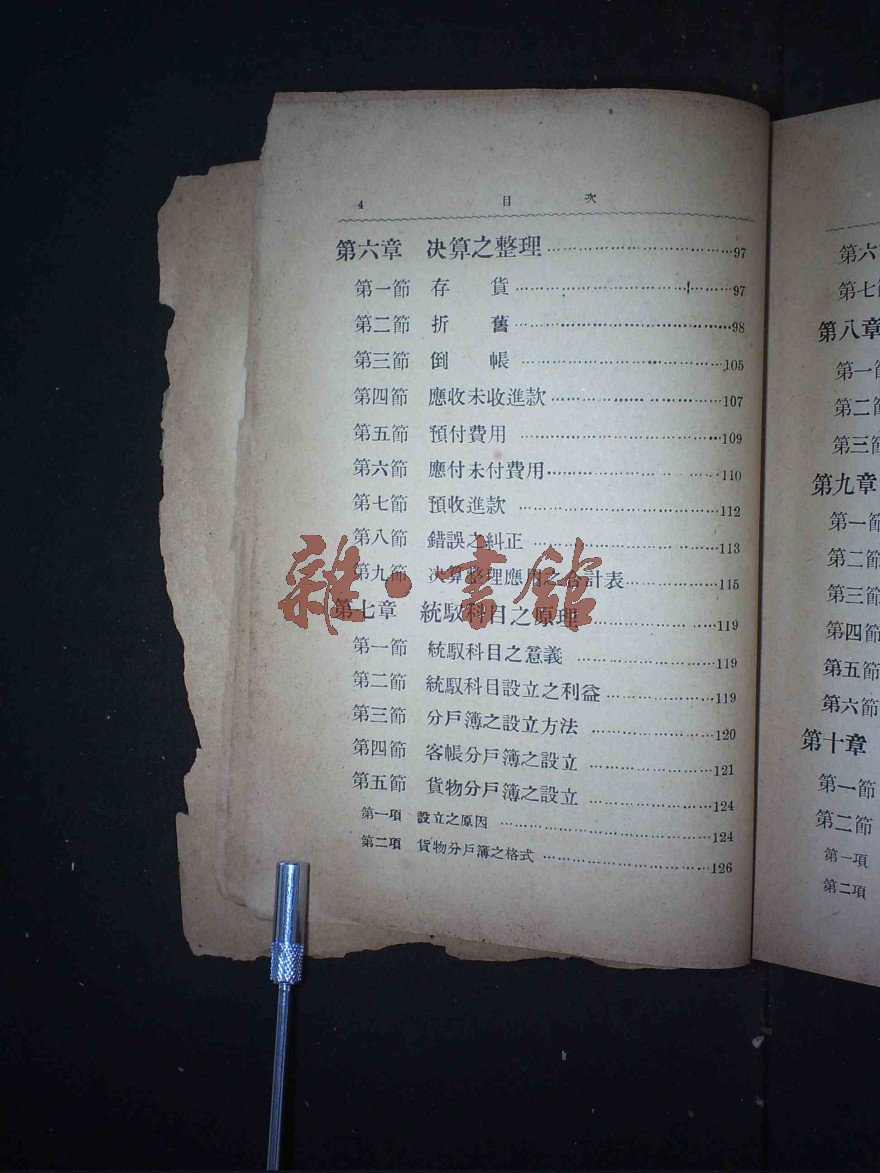 4 目 次
第六章 决算之整理 97
第一節 存 貨 97
第二節 折 舊 98
第三節 倒 帳 105
第四節 應收未收進款 107
第五節 預付費用 109
第六節 應付未付費用 110
第七節 預收進款 112
第八節 錯誤之糾正 113
第九節 决算整理應用之合計表 115
第七章 統馭科目之原理 119
第一節 統馭科目之意義 119
第二節 統馭科目設立之利益 119
第三節 分戶簿之設立方法 120
第四節 客帳分戶簿之設立 121
第五節 貨物分戶簿之設立 124
第一項 設立之原因 124
第二項 貨物分戶簿之格式 126
雜·書館
第六
第七
第八章
第一節
第二節
第三節
第九章
第一節
第二節
第三節
第四節
第五節
第六節
第十章
第一節
第二節
第一項
第二項